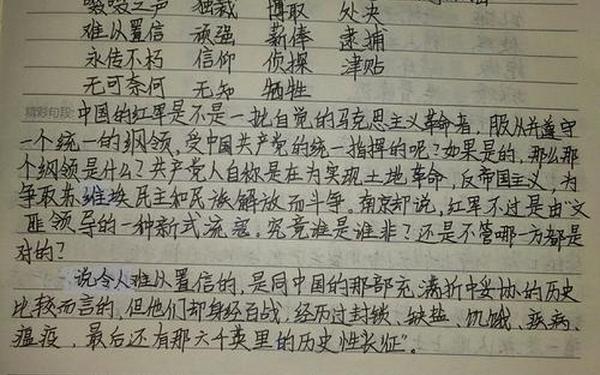 嗷嗷之声 独裁 博取 处决
难以置信 顽强 薪俸 逮捕
永传不朽 信仰 侦探 津贴
无可奈何 无知 牺牲
精彩句段: 中国的红军是不是一批自觉的马克思主义革命者,服从并遵守
一个统一的纲领,受中国共产党的统一指挥的呢?如果是的,那么那
个纲领是什么?共产党人自称是在为实现土地革命,反帝国主义,为
争取苏维埃民主和民族解放而斗争。南京却说,红军不过是由“文
匪领导的一种新式流寇。究竟谁是谁非?还是不管哪一方都是
对的?
说令人难以置信的,是同中国的那部充满折中妥协的历史
比较而言的,但他们却身经百战,经历过封锁、缺盐、饥饿、疾病、
瘟疫,最后还有那六千英里的历史性长征”。